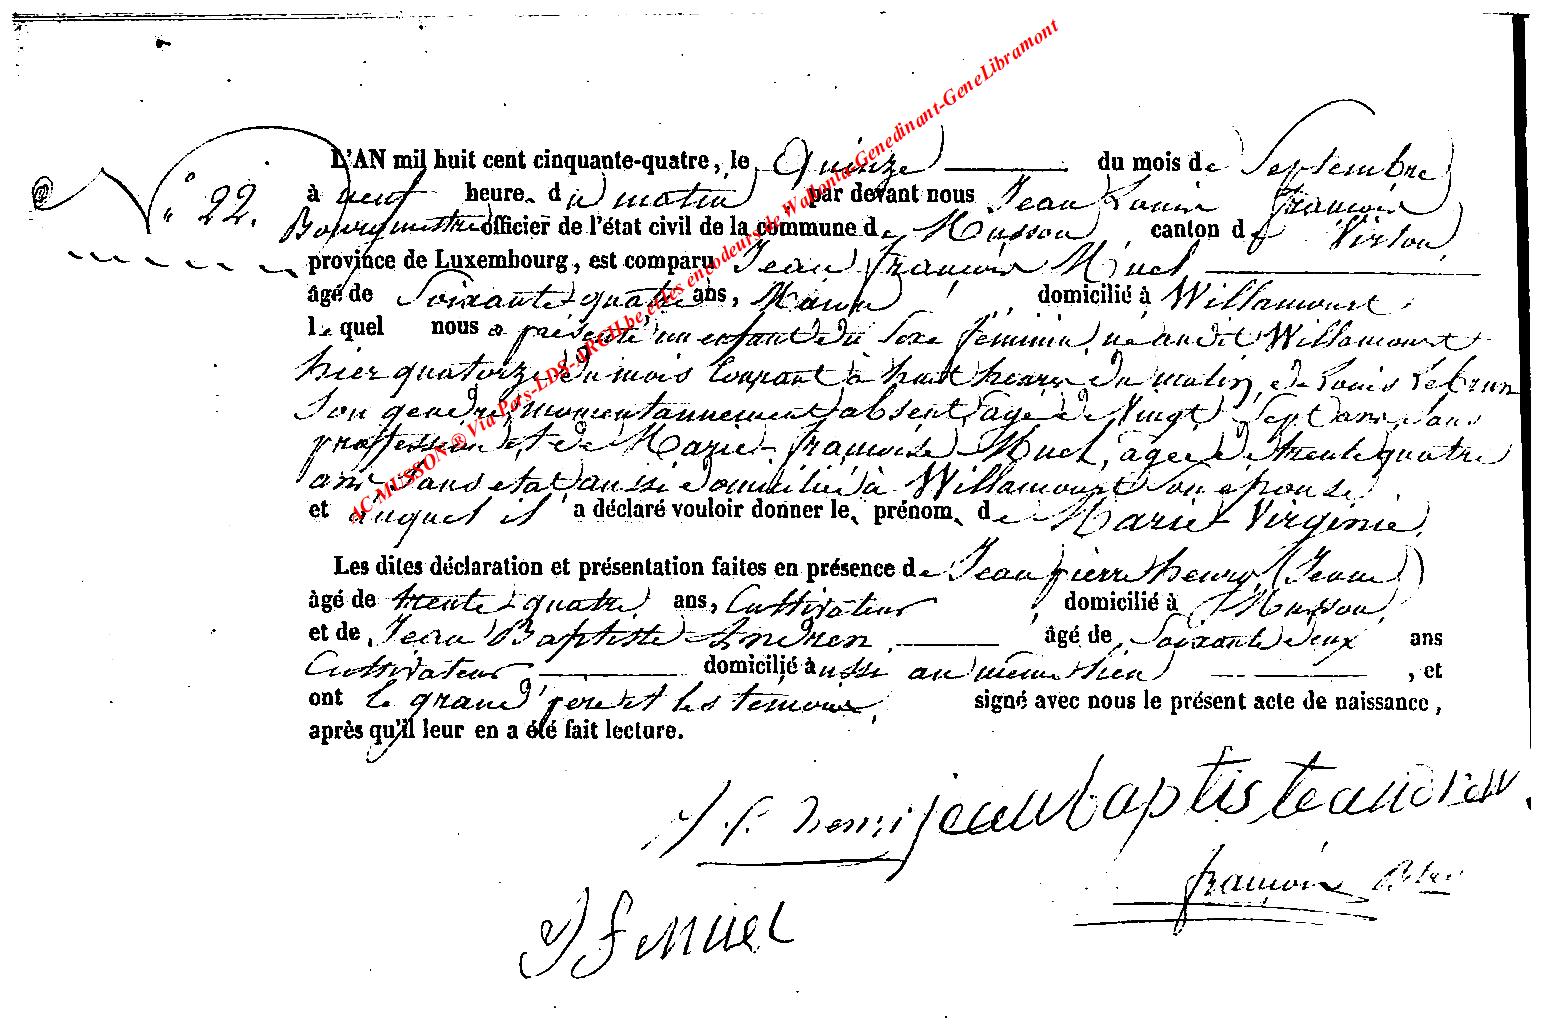 AC MUSSON® Via Pers-LDS-ARCH.be et les encodeurs de Wallonia-Genedinant-GeneLibramont
N° 22.
L'AN mil huit cent cinquante-quatre, le Quinze du mois de Septembre
à neuf heure. du matin par devant nous Jean Louis françois
Bourgmestre officier de l'état civil de la commune de Musson, canton de Virton,
province de Luxembourg, est comparu Jean françois Muel,
âgé de Soixante-quatre ans, domicilié à Willamcourt,
lequel nous a présenté un enfant du Sexe féminin, né audit Willamcourt
hier quatorze du mois Courant à huit heures du matin, de Louis Lebrun
son gendre, momentannement absent, agé de Vingt Sept ans, sans
proffession et de Marie-françoise Muel, agée de trente quatre
ans Sans état, aussi domicilié à Willamcourt Son épouse
et auquel il a déclaré vouloir donner le prénom de Marie-Virginie.
Les dites déclaration et présentation faites en présence de Jean pierre henry, (Jeune)
âgé de trente-quatre ans, Cultivateur, domicilié à Musson,
et de Jean Baptiste Andren, âgé de Soixante deux ans
Cultivateur domicilié aussi au même lieu, et
ont le grand père et les temoins, signé avec nous le présent acte de naissance,
après qu'il leur en a été fait lecture.
J. p. henri jean baptiste andrien
françois
J f Muel